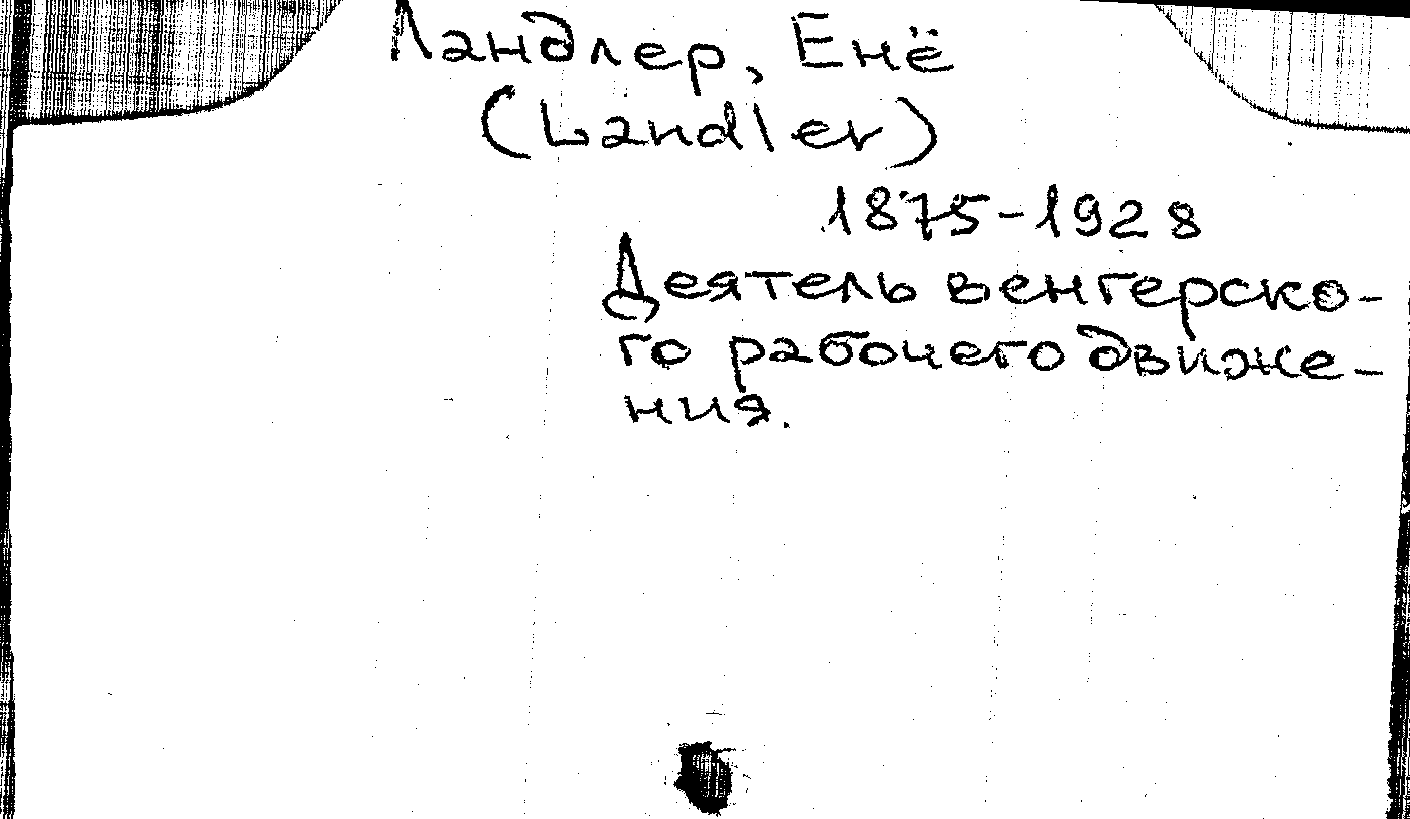 Ландлер, Енё
(Landler)
1875-1928
Деятель венгерско-
го рабочего движе-
ния.